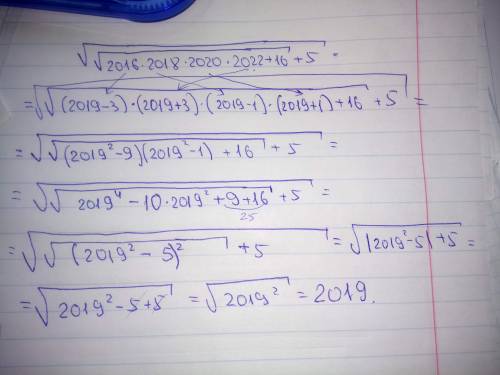 √(√(2016·2018·2020·2022+16) + 5) =
= √(√((2019-3)·(2019+3)·(2019-1)·(2019+1)+16) + 5) =
= √(√((2019²-9)(2019²-1)+16) + 5) =
= √(√(2019⁴-10·2019²+9+16) + 5) =
25
= √(√((2019²-5)²) + 5) = √(|2019²-5|+5) =
= √(2019²-5+5) = √(2019²) = 2019.